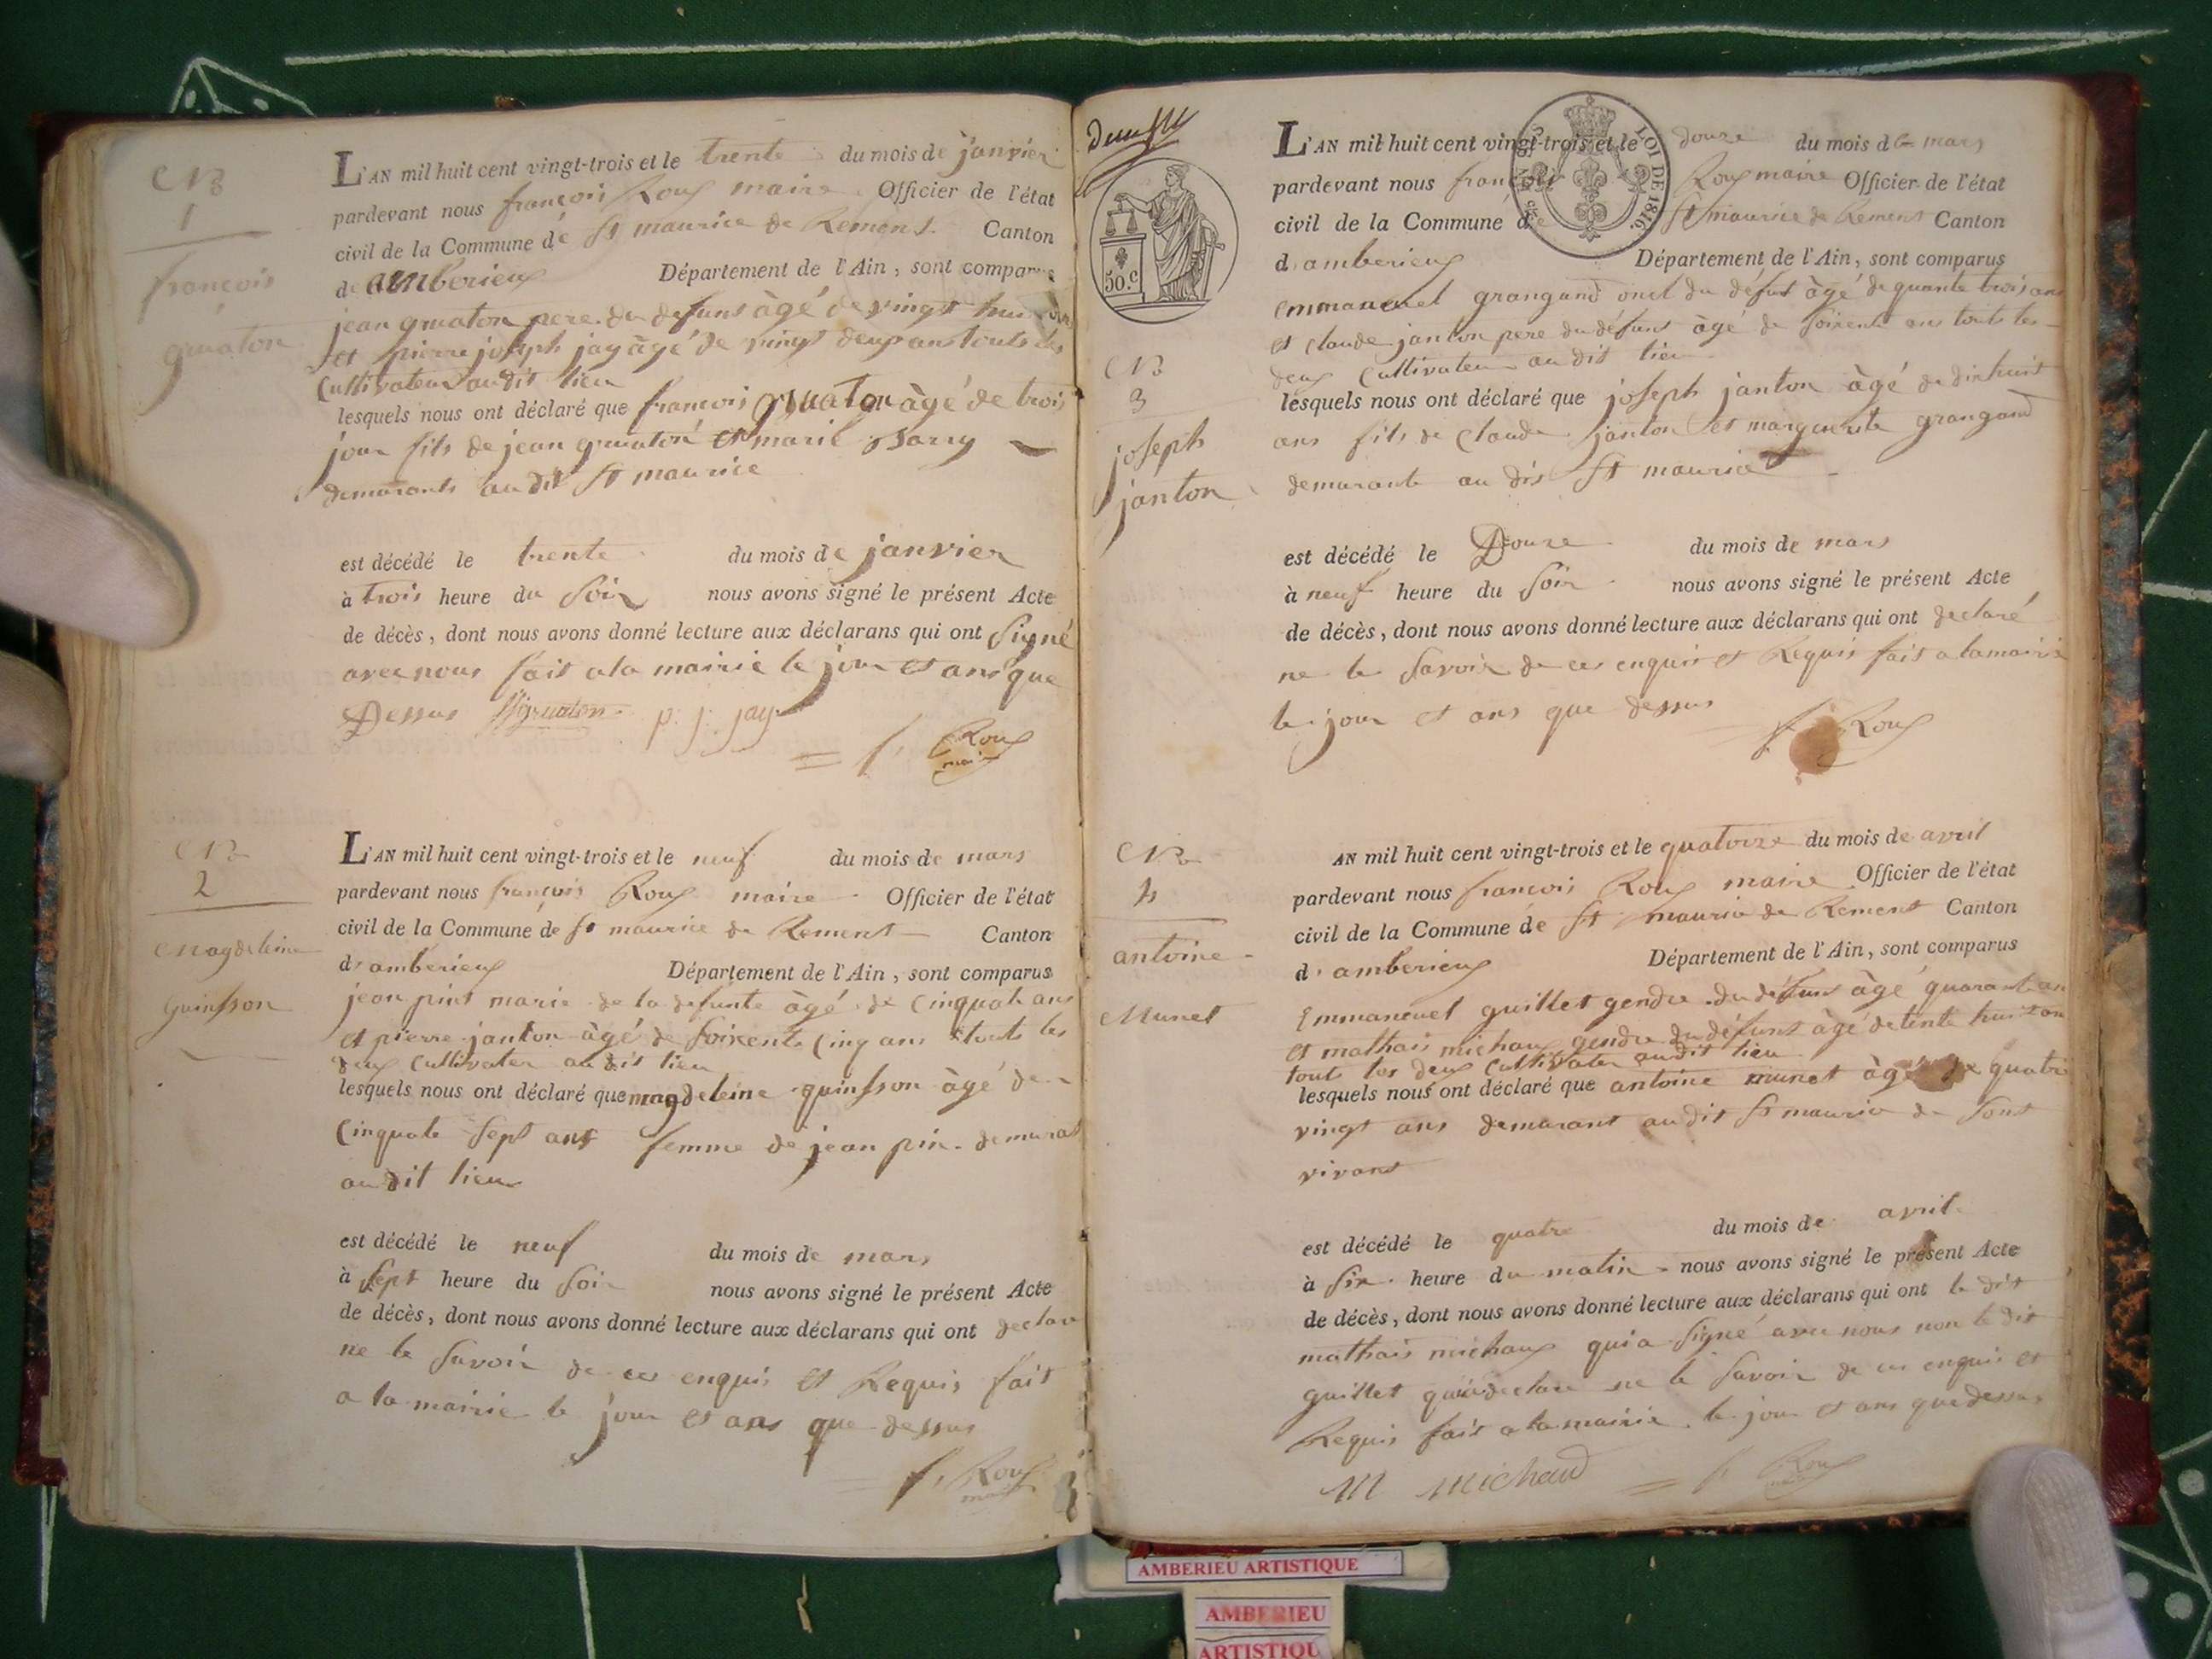 No
1
françois
gruaton
L'AN mil huit cent vingt-trois et le trente du mois de janvier
pardevant nous françois Roux maire Officier de l'état
civil de la Commune dé St maurice de Remens. Canton
de amberieux Département de l'Ain, sont comparus
jean gruaton pere du defunt àgé de vingt huit
et pierre joseph jay àgé de vingt deux ans touts les
Cultivateur audit lieu
lesquels nous ont déclaré que françois gruaton àgé de trois
jour fils de jean gruaton et marie Sarry
demurants au dit St maurice
est décédé le trente du mois de janvier
à trois heure du Soir nous avons signé le présent Acte
de décès, dont nous avons donné lecture aux déclarans qui ont Signé
avec nous fait a la mairie le jour et ans que
Dessus gruaton p. j. jay
f. Roux
maire
No
2
Magdeleine
guinsson
L'AN mil huit cent vingt-trois et le neuf du mois de mars
pardevant nous françois Roux maire Officier de l'état
civil de la Commune de St maurice de Remens Canton
d'amberieux Département de l'Ain, sont comparus
jean pins marie de la defunte àgé de Cinquate ans
et pierre janton àgé de Soixente Cinq ans touts les
deux Cultivater au dit lieu
lesquels nous ont déclaré que magdeleine guinsson àgé de
Cinquate Sept ans femme de jean pin demurat
au dit lieu
est décédé le neuf du mois de mars
à Sept heure du Soir nous avons signé le présent Acte
de décès, dont nous avons donné lecture aux déclarans qui ont declare
ne le Savoir de ce enquis et Requis fait
a la mairie le jour et ans que dessus
f. Roux
maire
50.C
LOI DE 1816.
No
3
joseph
janton
L'AN mil huit cent vingt-trois et le douze du mois de mars
pardevant nous françois Roux maire Officier de l'état
civil de la Commune de St maurice de Remens Canton
d'amberieux Département de l'Ain, sont comparus
emmanuel grangand oncl du défut àgé de quante trois ans
et claude janton pere du défunt àgé de Soixente ans touts les
deux Cultivateur au dit lieu
lesquels nous ont déclaré que joseph janton àgé de dixhuit
ans fils de Claude janton et marguerite grangand
demurants au dit St maurice
est décédé le Douze du mois de mars
à neuf heure du Soir nous avons signé le présent Acte
de décès, dont nous avons donné lecture aux déclarans qui ont declaré
ne le Savoir de ce enquis et Requis fait a lamairie
le jour et ans que dessus
f Roux
No
4
antoine
Munet
AN mil huit cent vingt-trois et le quatorze du mois de avril
pardevant nous françois Roux maire Officier de l'état
civil de la Commune de St maurice de Remens Canton
d'amberieux Département de l'Ain, sont comparus
Emmanuel guillet gendre du défunt àgé quarante an
et mathais michaux gendre du défunt àgé detente huit an
touts les deux Cultivater au dit lieu
lesquels nous ont déclaré que antoine munet àgé de quatre
vingt ans demurant au dit St maurice de Sont
vivant
est décédé le quatre du mois de avril
à Six heure du matin nous avons signé le présent Acte
de décès, dont nous avons donné lecture aux déclarans qui ont le dit
mathais michaux qui a Signé avec nous non le dit
guillet qui a declare ne le Savoir de ce enquis et
Requis fait a la mairie le jour et ans que dessus
M Michaud f Roux
AMBERIEU ARTISTIQUE
AMBERIEU
ARTISTIQU